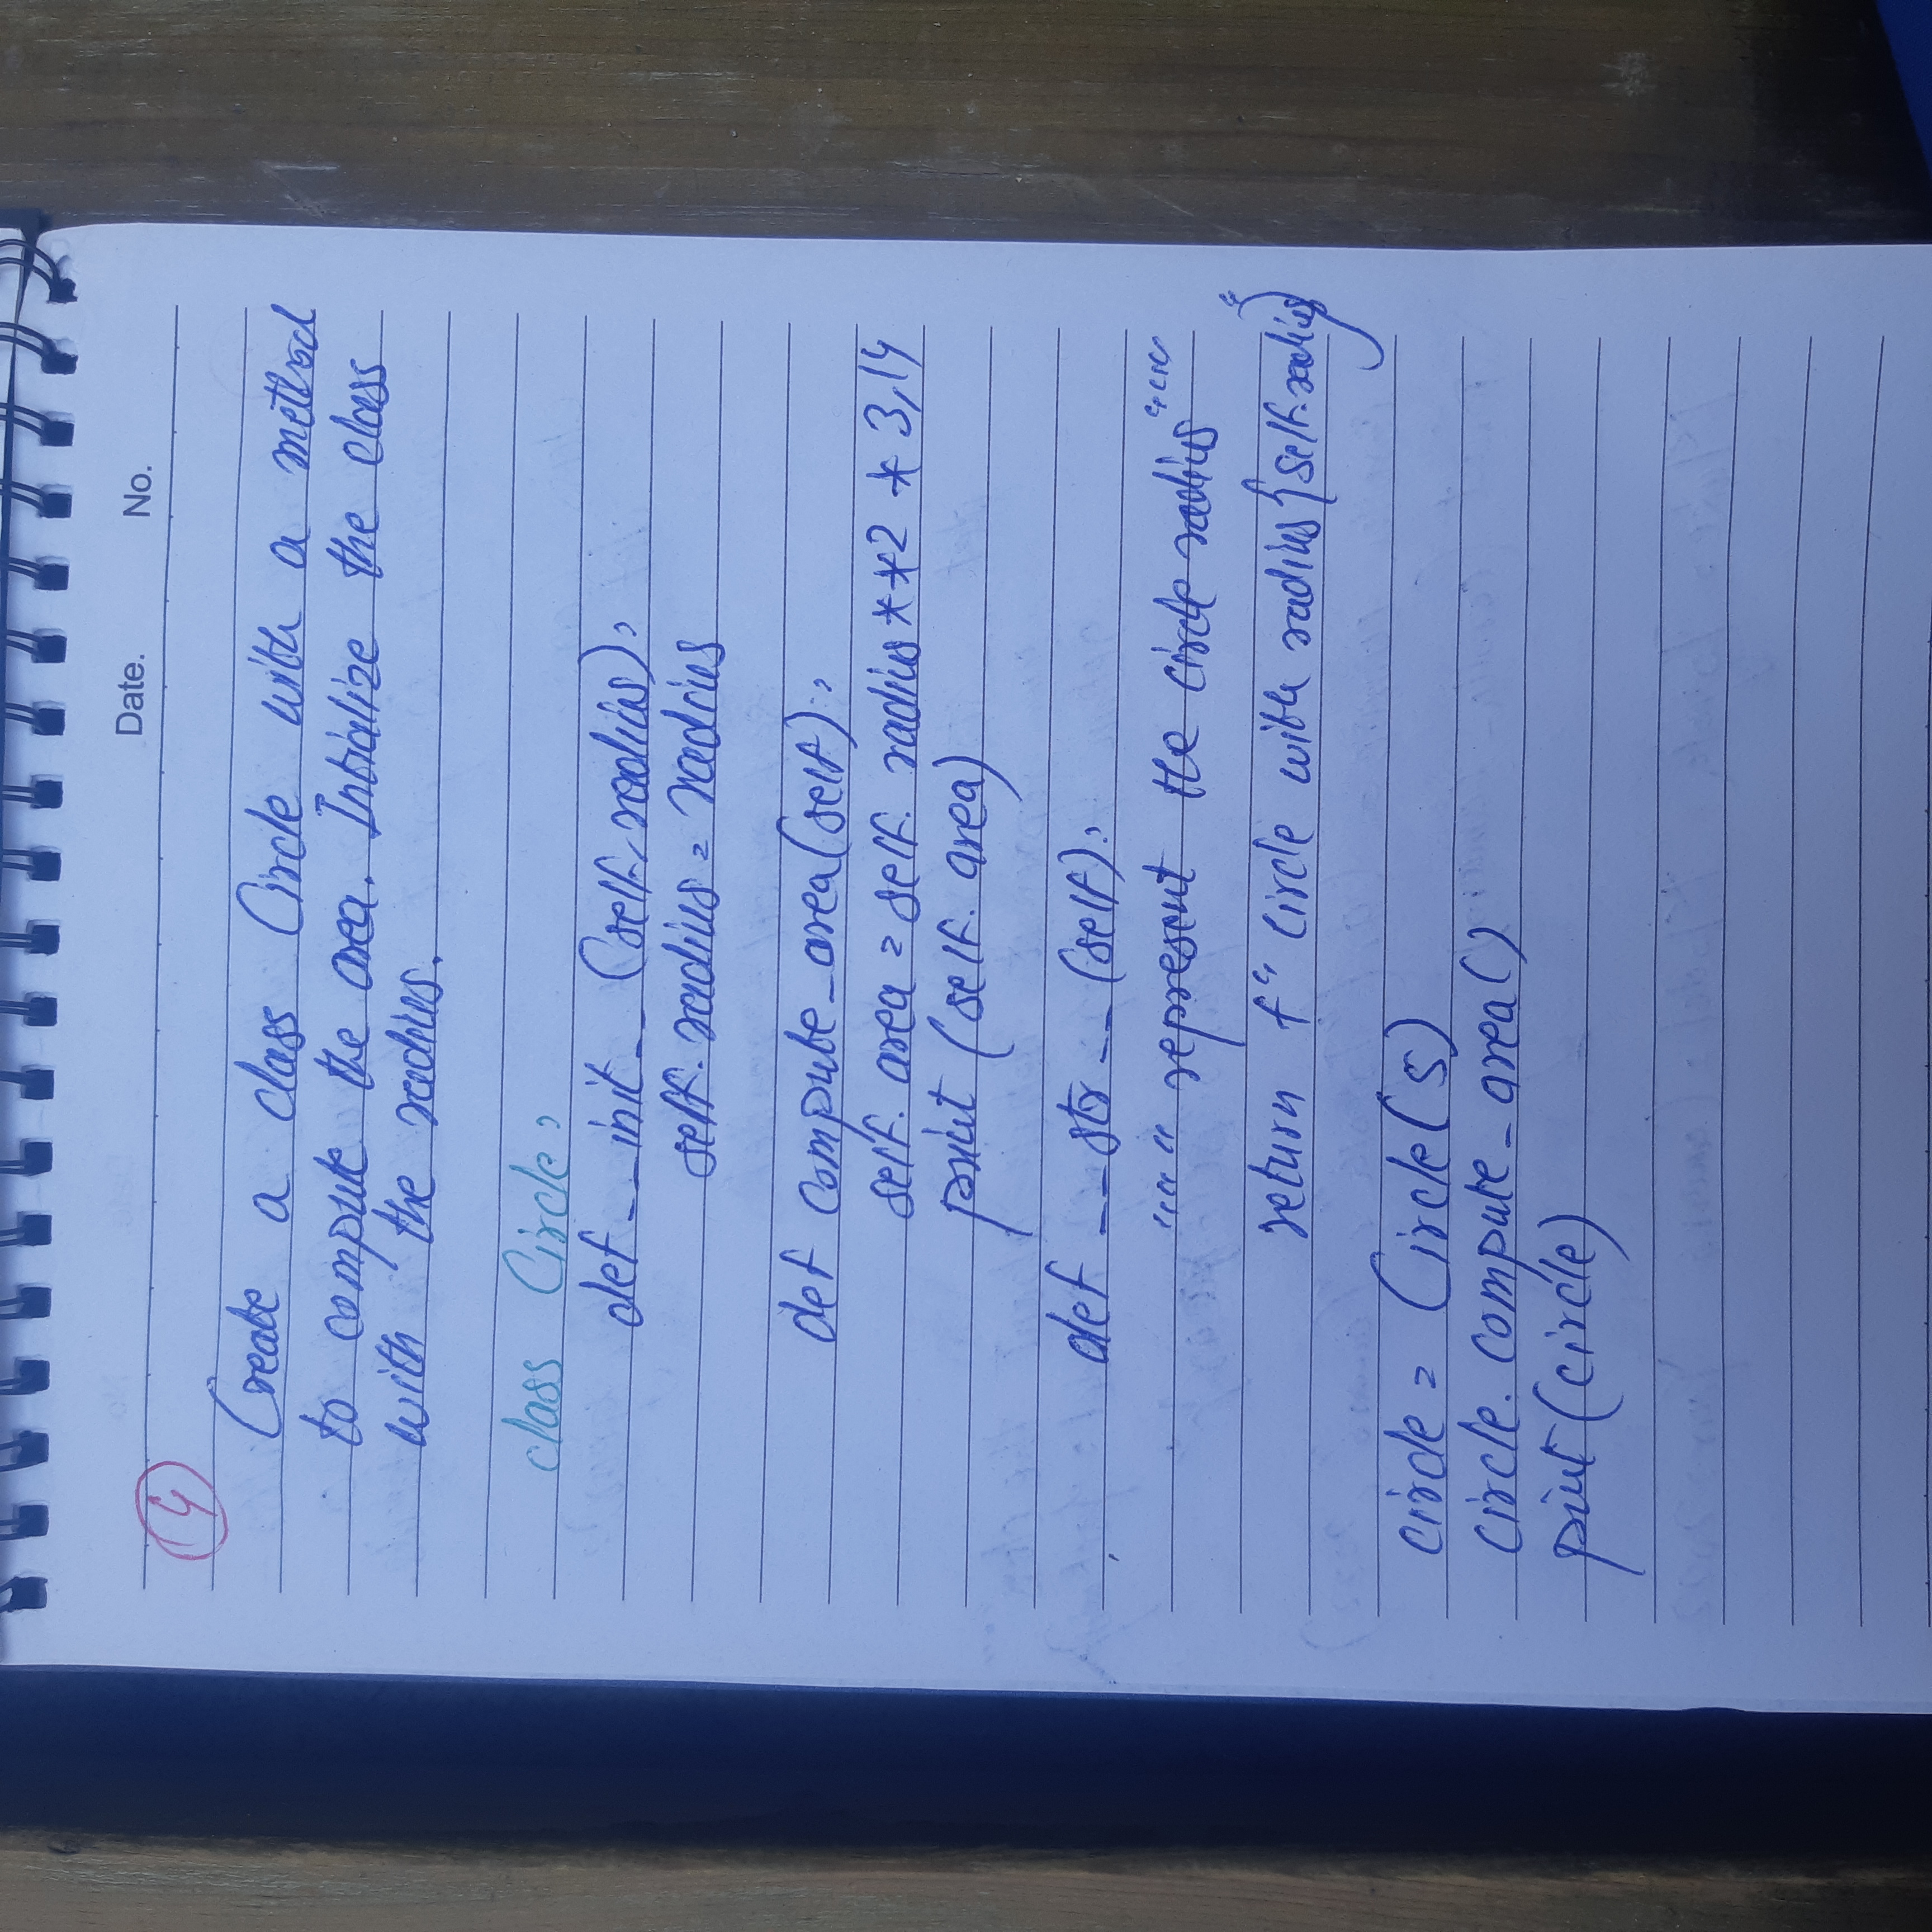 Date. No.
4
Create a class Circle with a method
to compute the area. Initialize the class
with the radius.
class Circle:
def __init__ (self, radius):
self. radius = radius
def compute_area(self):
self. area = self. radius**2 * 3,14
print (self. area)
def __str__ (self):
""" represent the circle radius """
return f" Circle with radius {self.radius}"
circle = Circle(5)
circle. compute_area()
print (circle)